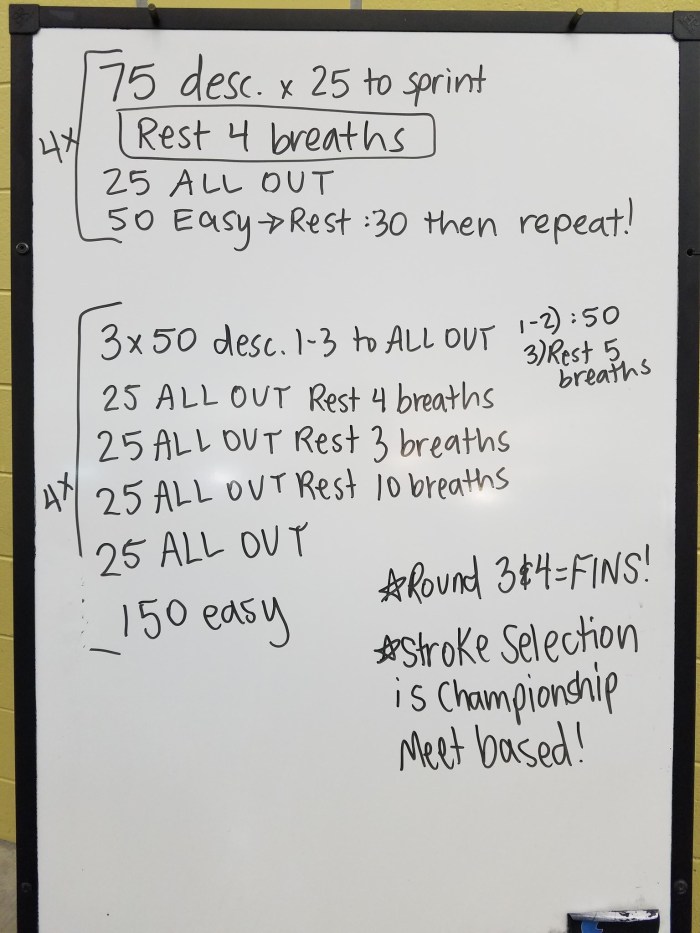 4x
75 desc. x 25 to sprint
Rest 4 breaths
25 ALL OUT
50 Easy → Rest :30 then repeat!
4x
3 x 50 desc. 1-3 to ALL OUT
1-2) :50
3) Rest 5
breaths
25 ALL OUT Rest 4 breaths
25 ALL OUT Rest 3 breaths
25 ALL OUT Rest 10 breaths
25 ALL OUT
150 easy
☆Round 3&4=FINS!
☆Stroke Selection
is Championship
Meet based!